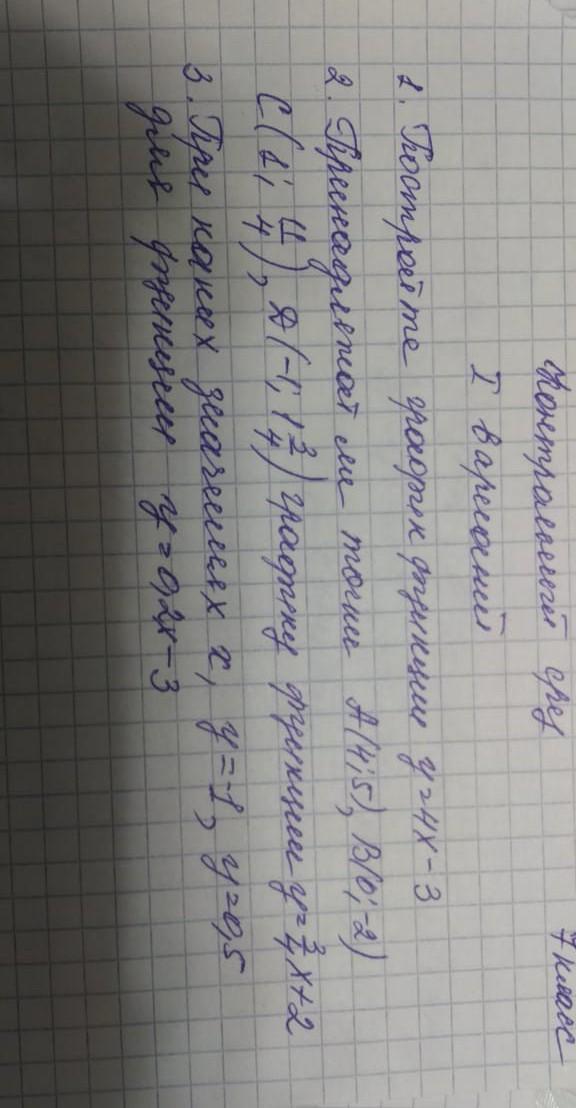 7 класс
Контрольный срез
I вариант
1. Постройте график функции y=4x-3
2. Принадлежат ли точки A(4;5), B(0;-2)
C(1; 11/4), D(-1; 1 3/4) графику функции y=3/4x+2
3. При каких значениях x, y=-1, y=0,5
для функции y=0,2x-3